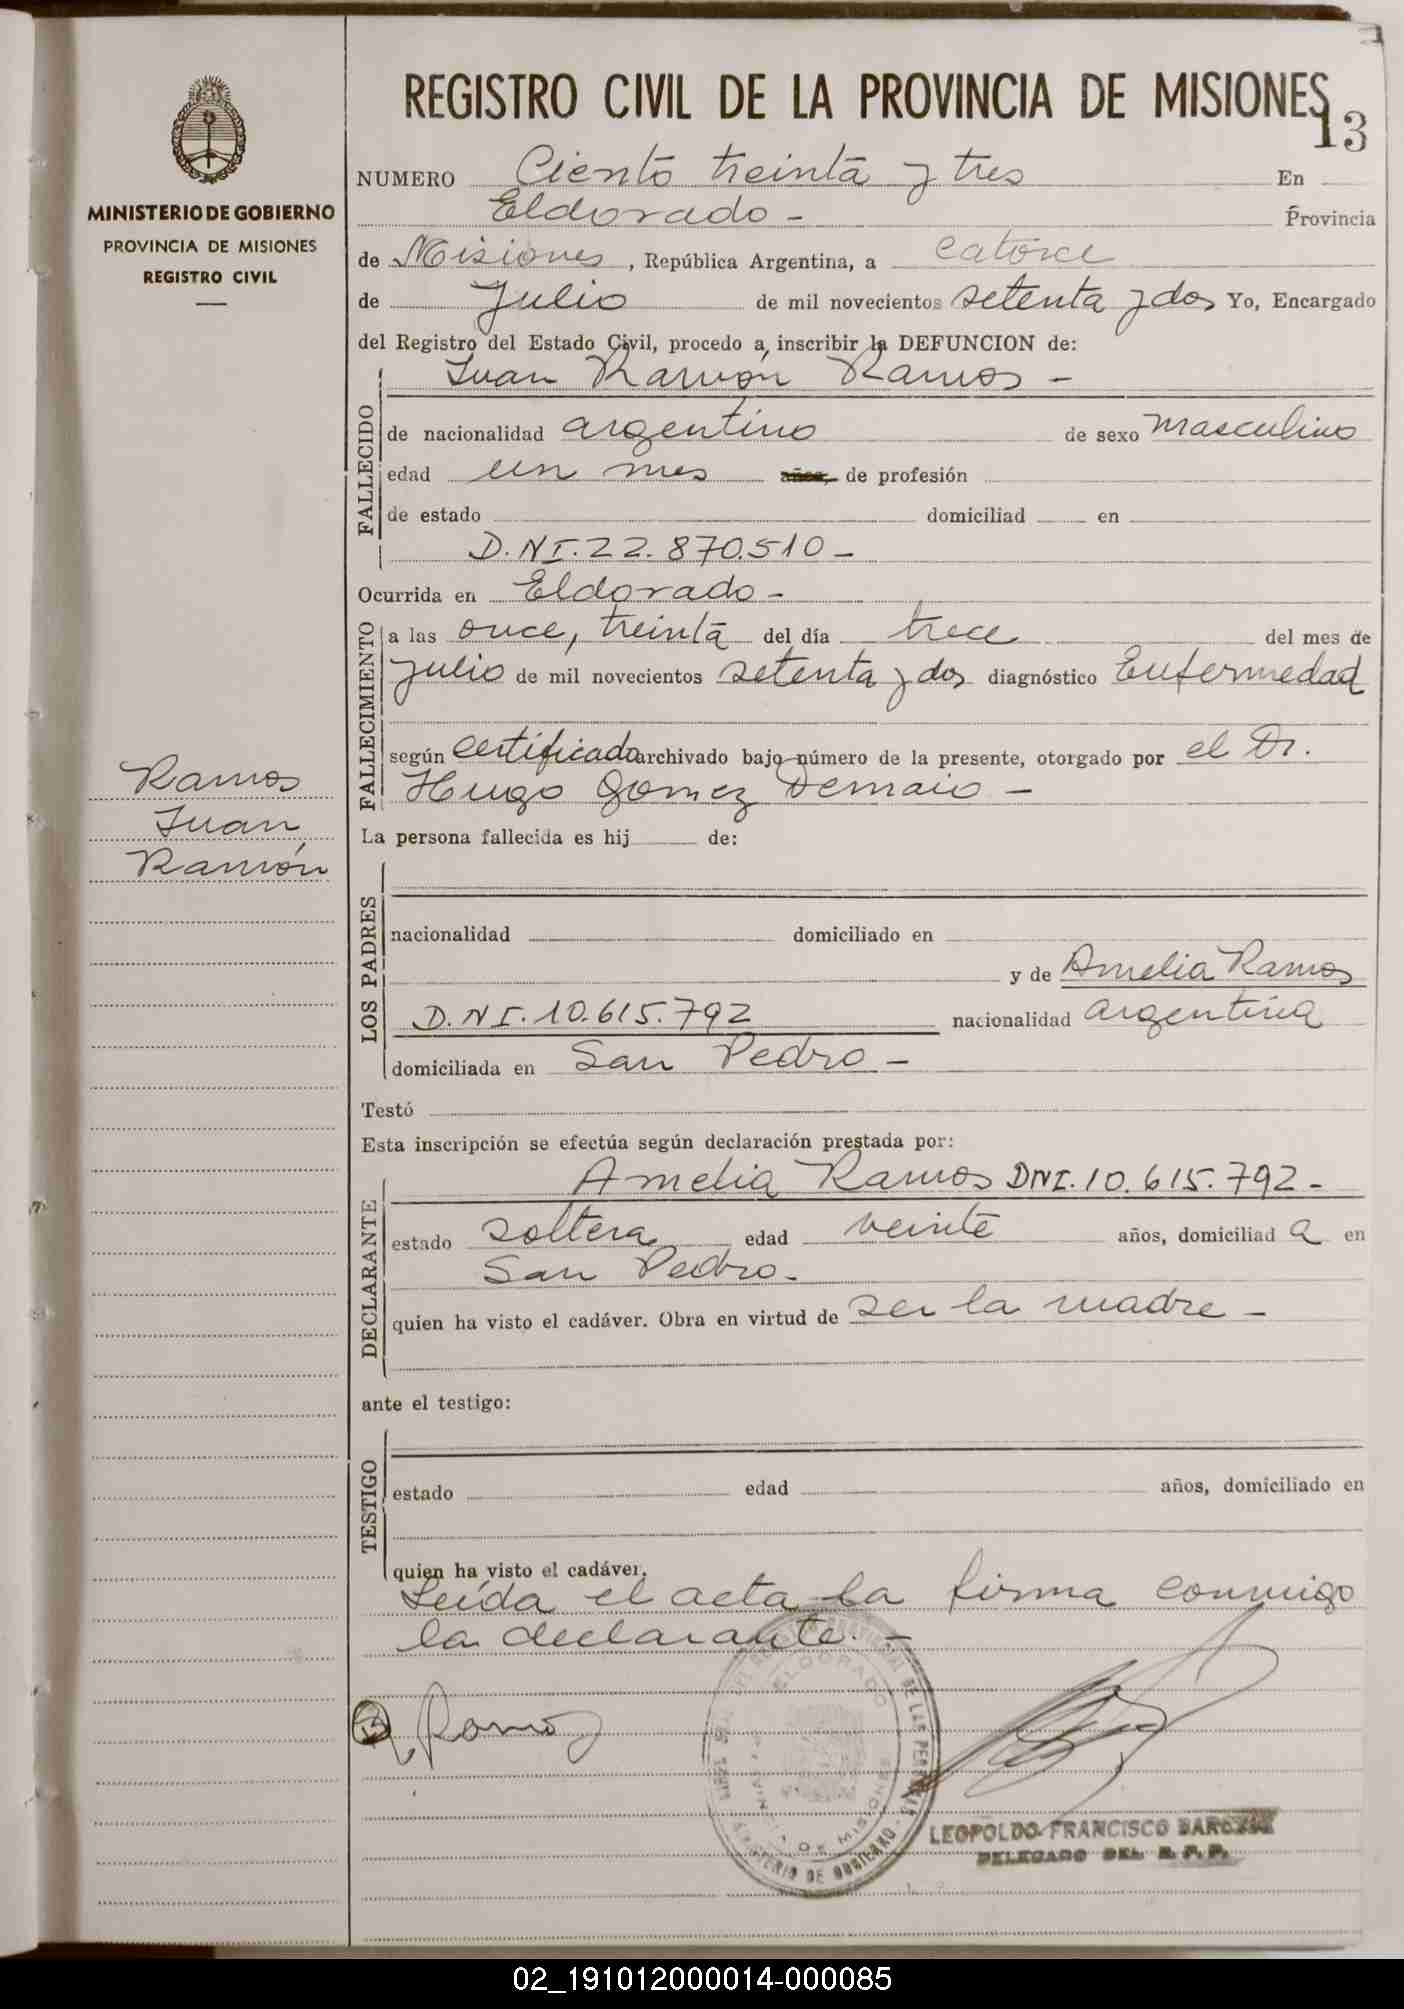 REGISTRO CIVIL DE LA PROVINCIA DE MISIONES
13
MINISTERIO DE GOBIERNO
PROVINCIA DE MISIONES
REGISTRO CIVIL
NUMERO Ciento treinta y tres En
Eldorado - Provincia
de Misiones, República Argentina, a catorce
de Julio de mil novecientos setenta y dos Yo, Encargado
del Registro del Estado Civil, procedo a inscribir la DEFUNCION de:
Juan Ramón Ramos -
FALLECIDO
de nacionalidad argentino de sexo masculino
edad un mes años, de profesión
de estado domiciliad en
D.NI.22.870.510 -
Ocurrida en Eldorado -
FALLECIMIENTO
a las once, treinta del día trece del mes de
julio de mil novecientos setenta y dos diagnóstico Enfermedad
según certificado archivado bajo número de la presente, otorgado por el Dr.
Hugo Gomez Demaio -
Ramos
Juan
Ramón
La persona fallecida es hij de:
LOS PADRES
nacionalidad domiciliado en
y de Amelia Ramos
D.NI.10.615.792 nacionalidad argentina
domiciliada en San Pedro -
Testó
Esta inscripción se efectúa según declaración prestada por:
DECLARANTE
Amelia Ramos DNI.10.615.792 -
estado soltera edad veinte años, domiciliad a en
San Pedro -
quien ha visto el cadáver. Obra en virtud de ser la madre -
ante el testigo:
TESTIGO
estado edad años, domiciliado en
quien ha visto el cadáver.
Leída el acta la firma conmigo
la declarante. -
Ramos
ELDORADO
PROVINCIA DE MISIONES
MINISTERIO DE GOBIERNO
LEOPOLDO FRANCISCO
DELEGADO DEL R. P. P.
02_191012000014-000085